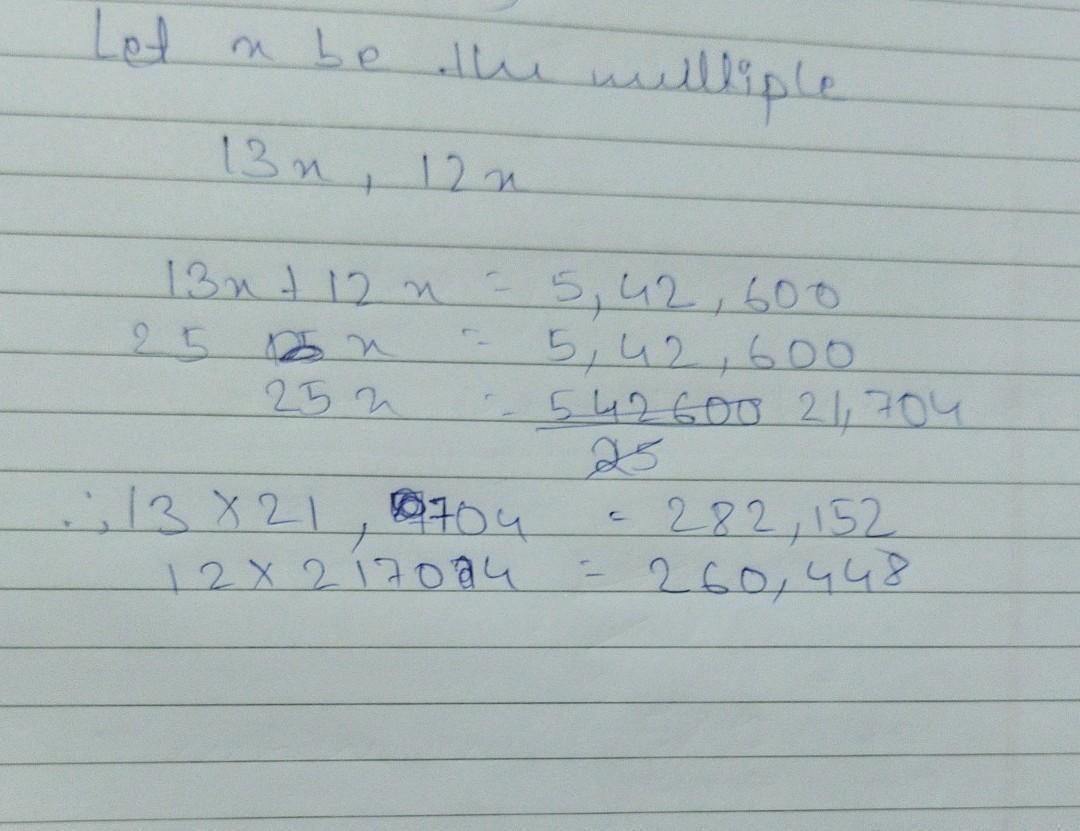 Let x be the multiple
13x, 12x
13x + 12x = 5,42,600
25 x = 5,42,600
25x = 542600 21,704
25
∴ 13 × 21,704 = 282,152
12 × 21704 = 260,448